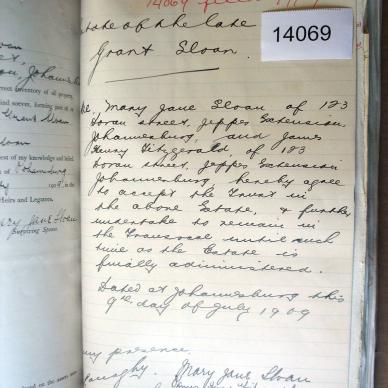 14069
14069
Estate of the late
Grant Sloan
We, Mary Jane Sloan of 183
Doran street, Jeppes Extension,
Johannesburg, and James
Henry Fitzgerald, of 183
Doran street, Jeppes Extension
Johannesburg, hereby agree
to accept the Trust in
the above Estate, & further
undertake to remain in
the Transvaal until such
time as the Estate is
finally administered.
Dated at Johannesburg this
9th day of July 1909
my presence
Mary Jane Sloan
Sloan
Johannesburg
rect inventory of all property,
ind soever, forming part of
Sloan
est of my knowledge and belief.
190
Heirs and Legatees.
Mary Jane Sloan
Surviving Spouse